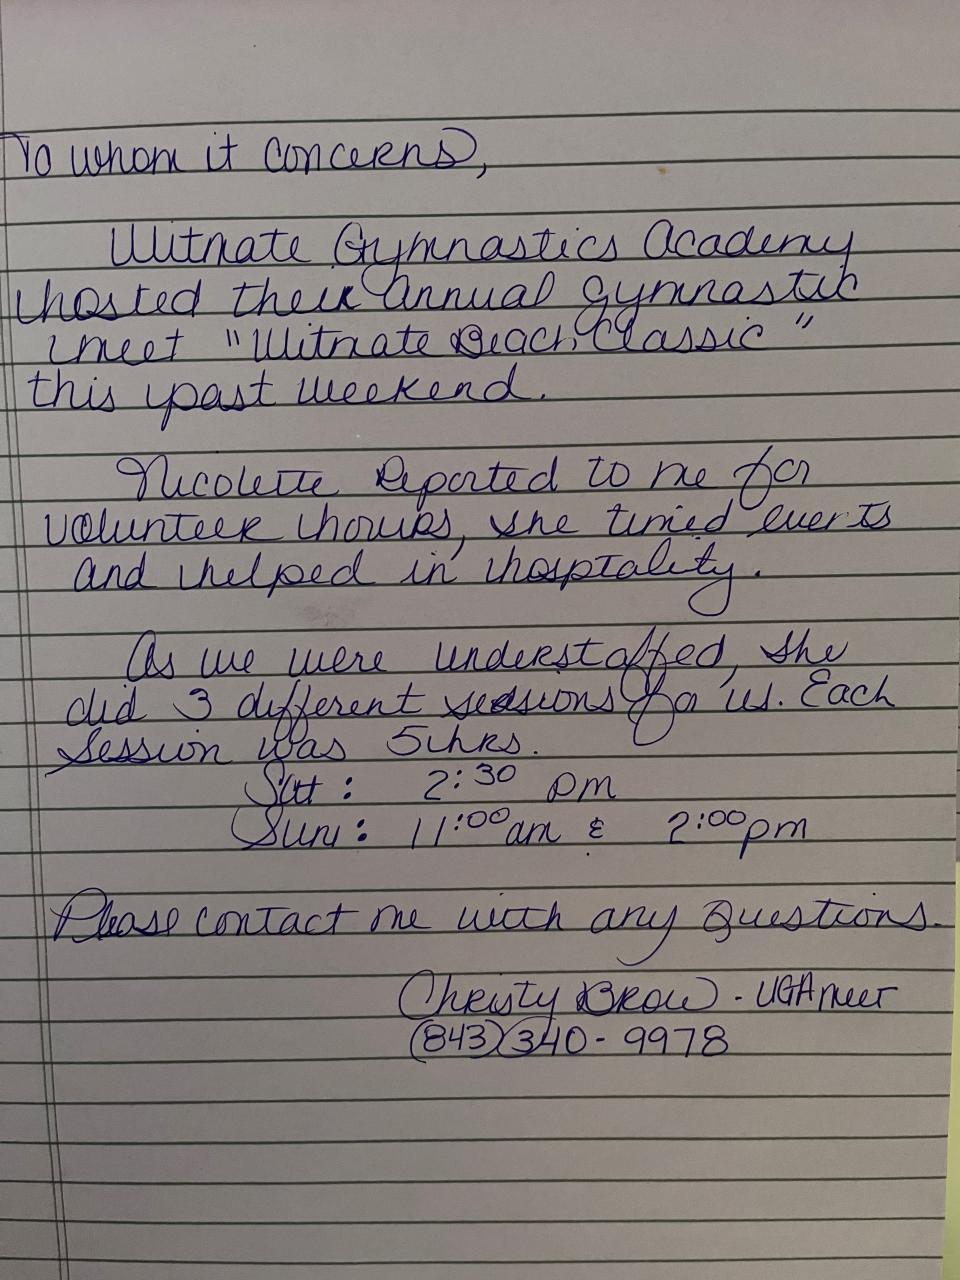 To whom it concerns,
Ultimate Gymnastics Academy
hosted their annual gymnastic
meet "Ultimate Beach Classic"
this past weekend.
Nicolette Reported to me for
volunteer hours, she timed events
and helped in hosptality.
As we were understaffed, she
did 3 different sessions for us. Each
session was 5 hrs.
Sat: 2:30 pm
Sun: 11:00 am & 2:00 pm
Please contact me with any Questions.
Christy - UGA meet
(843) 340-9978